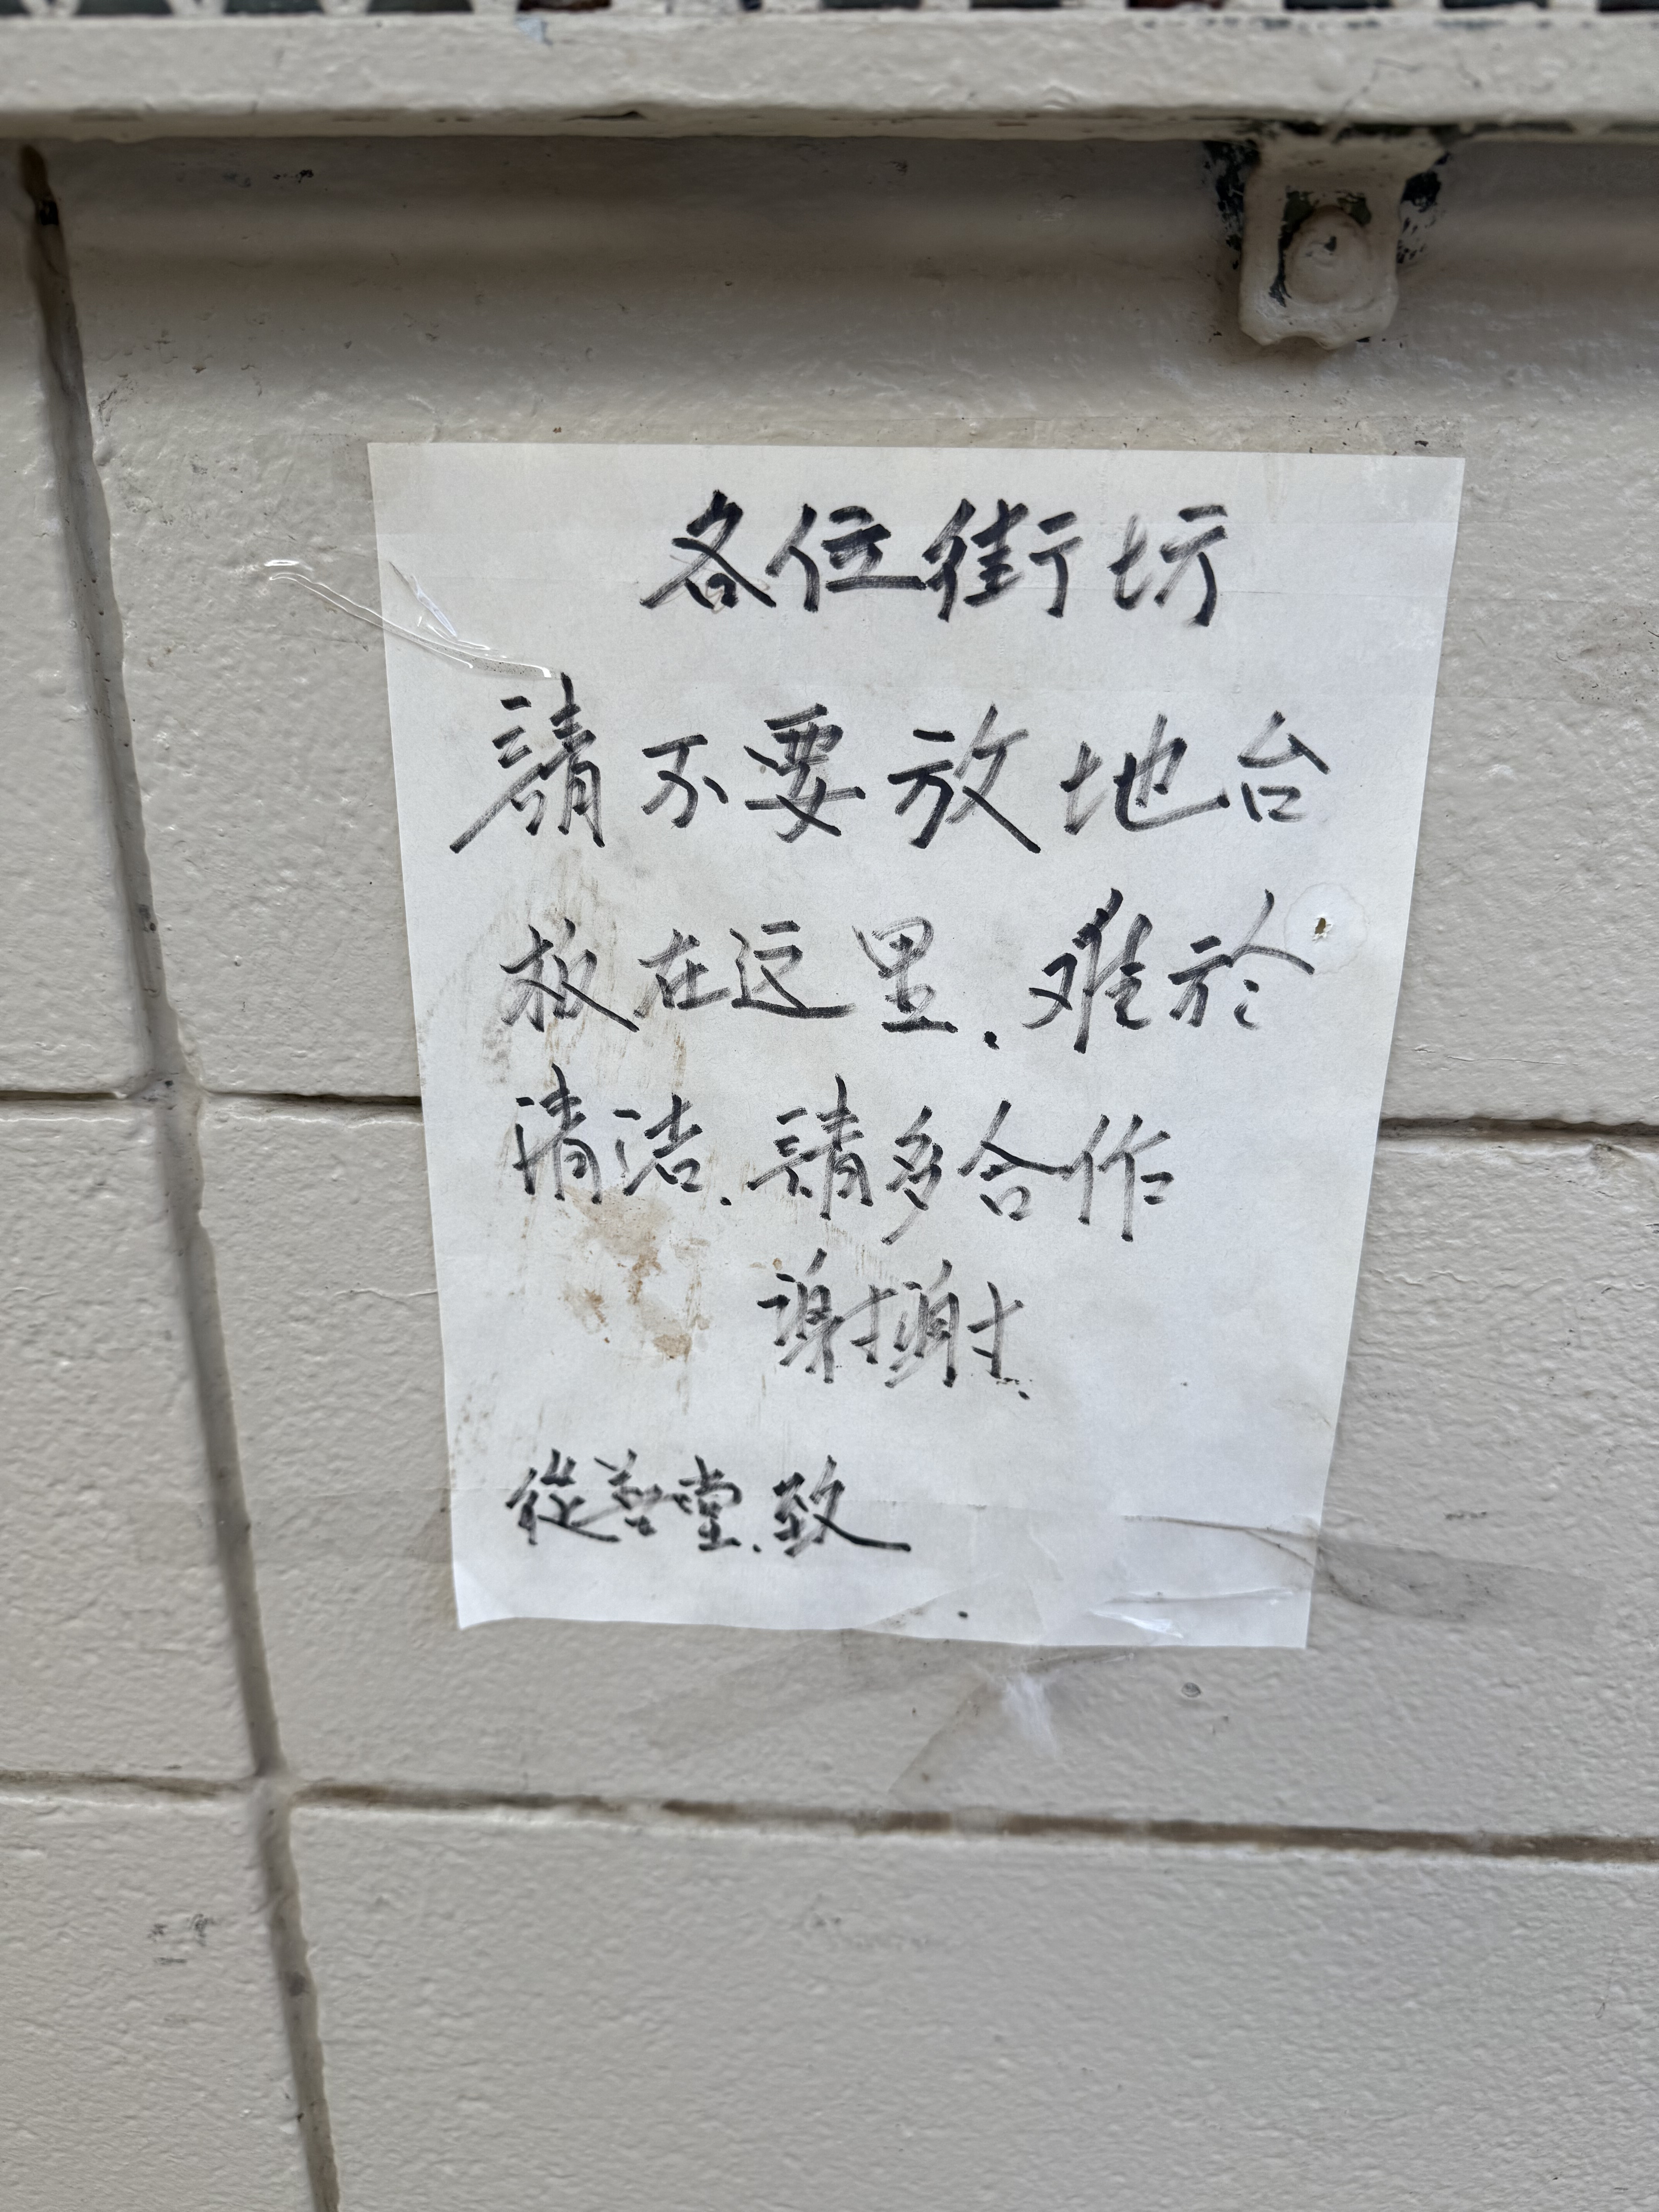 各位街坊
請不要放地台
板在这里.难於
清洁.請多合作
謝謝.
從善堂.致